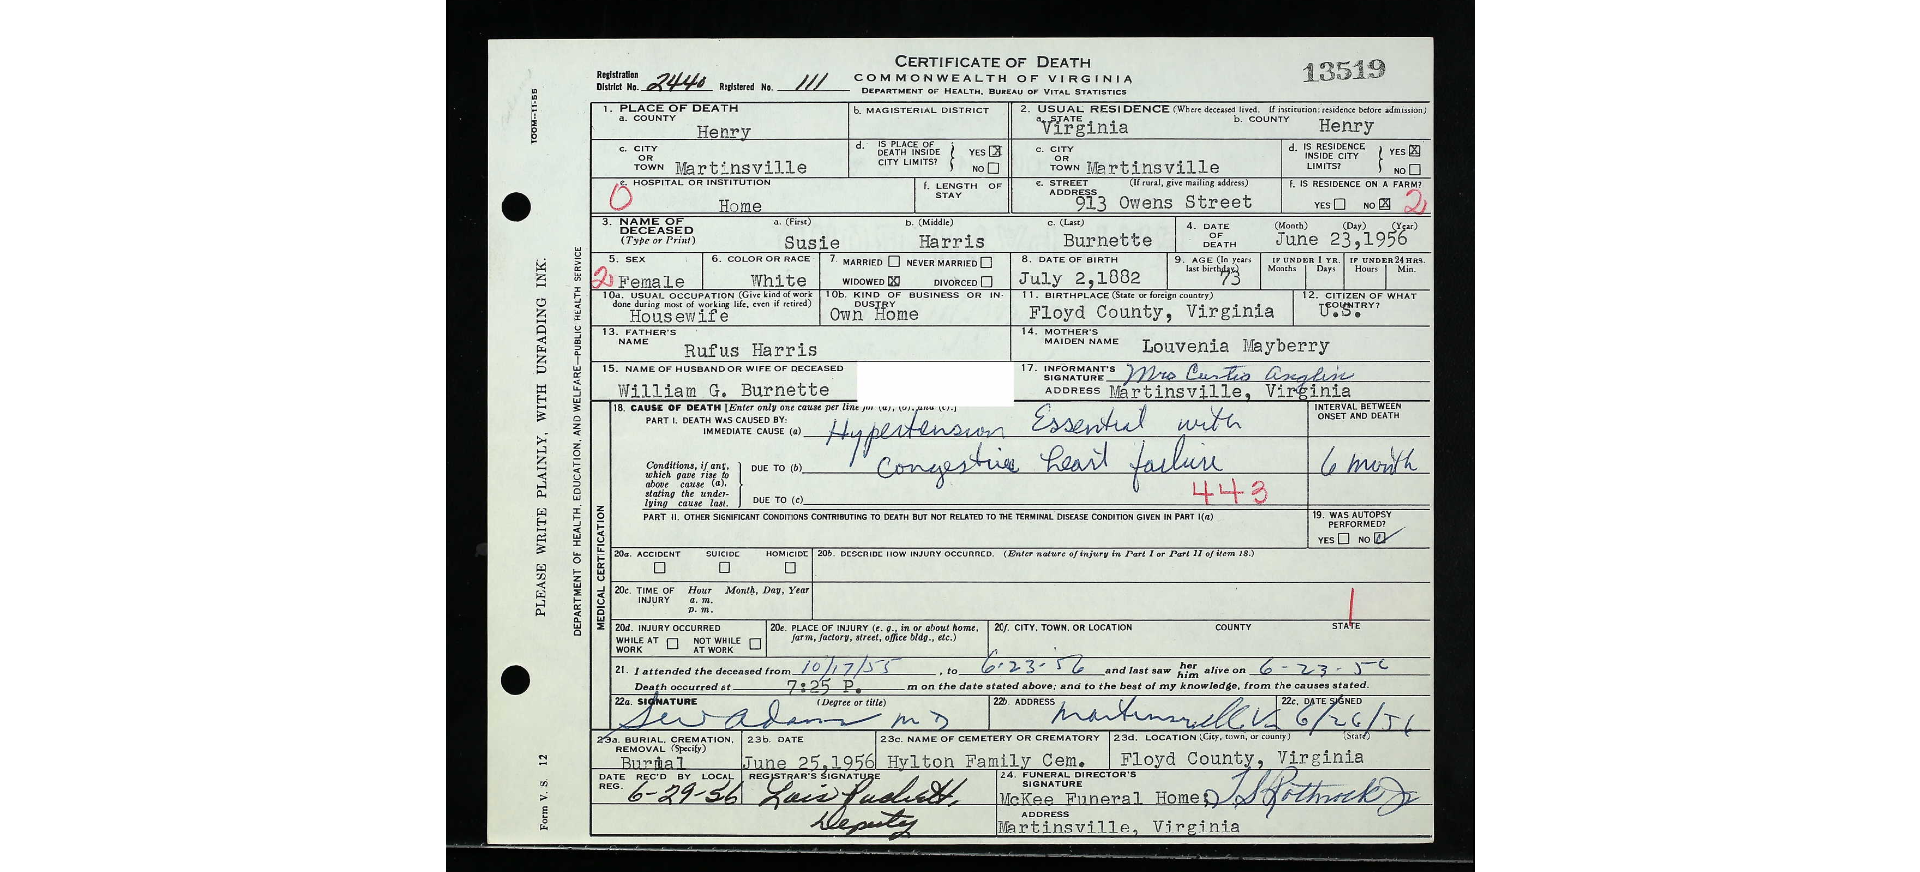 CERTIFICATE OF DEATH
COMMONWEALTH OF VIRGINIA
DEPARTMENT OF HEALTH, BUREAU OF VITAL STATISTICS
13519
Registration District No. 2440 Registered No. 111
100M—11-55
PLEASE WRITE PLAINLY, WITH UNFADING INK.
DEPARTMENT OF HEALTH, EDUCATION, AND WELFARE—PUBLIC HEALTH SERVICE
Form V. S. 12
1. PLACE OF DEATH
a. COUNTY Henry
b. MAGISTERIAL DISTRICT
2. USUAL RESIDENCE (Where deceased lived. If institution: residence before admission)
a. STATE Virginia
b. COUNTY Henry
c. CITY OR TOWN Martinsville
d. IS PLACE OF DEATH INSIDE CITY LIMITS? YES X NO
c. CITY OR TOWN Martinsville
d. IS RESIDENCE INSIDE CITY LIMITS? YES X NO
e. HOSPITAL OR INSTITUTION Home
0
f. LENGTH OF STAY
e. STREET ADDRESS (If rural, give mailing address) 913 Owens Street
f. IS RESIDENCE ON A FARM? YES NO X 2
3. NAME OF DECEASED (Type or Print)
a. (First) Susie
b. (Middle) Harris
c. (Last) Burnette
4. DATE OF DEATH (Month) (Day) (Year) June 23,1956
5. SEX 2 Female
6. COLOR OR RACE White
7. MARRIED NEVER MARRIED WIDOWED X DIVORCED
8. DATE OF BIRTH July 2,1882
9. AGE (In years last birthday) 73
IF UNDER 1 YR. Months Days
IF UNDER 24 HRS. Hours Min.
10a. USUAL OCCUPATION (Give kind of work done during most of working life, even if retired) Housewife
10b. KIND OF BUSINESS OR INDUSTRY Own Home
11. BIRTHPLACE (State or foreign country) Floyd County, Virginia
12. CITIZEN OF WHAT COUNTRY? U.S.
13. FATHER'S NAME Rufus Harris
14. MOTHER'S MAIDEN NAME Louvenia Mayberry
15. NAME OF HUSBAND OR WIFE OF DECEASED William G. Burnette
17. INFORMANT'S SIGNATURE Mrs Curtis Anglin
ADDRESS Martinsville, Virginia
MEDICAL CERTIFICATION
18. CAUSE OF DEATH [Enter only one cause per line for (a), (b), and (c).]
INTERVAL BETWEEN ONSET AND DEATH
PART I. DEATH WAS CAUSED BY:
IMMEDIATE CAUSE (a) Hypertension Essential with
Conditions, if any, which gave rise to above cause (a), stating the underlying cause last.
DUE TO (b) Congestive heart failure 6 month
DUE TO (c) 443
PART II. OTHER SIGNIFICANT CONDITIONS CONTRIBUTING TO DEATH BUT NOT RELATED TO THE TERMINAL DISEASE CONDITION GIVEN IN PART I(a)
19. WAS AUTOPSY PERFORMED? YES NO
20a. ACCIDENT SUICIDE HOMICIDE
20b. DESCRIBE HOW INJURY OCCURRED. (Enter nature of injury in Part I or Part II of item 18.)
20c. TIME OF INJURY Hour Month, Day, Year a. m. p. m.
20d. INJURY OCCURRED WHILE AT WORK NOT WHILE AT WORK
20e. PLACE OF INJURY (e. g., in or about home, farm, factory, street, office bldg., etc.)
20f. CITY, TOWN, OR LOCATION COUNTY STATE
21. I attended the deceased from 10/17/55, to 6-23-56 and last saw her him alive on 6-23-56
Death occurred at 7:25 P. m on the date stated above; and to the best of my knowledge, from the causes stated.
22a. SIGNATURE (Degree or title) Adams MD
22b. ADDRESS Martinsville Va
22c. DATE SIGNED 6/26/56
23a. BURIAL, CREMATION, REMOVAL (Specify) Burial
23b. DATE June 25,1956
23c. NAME OF CEMETERY OR CREMATORY Hylton Family Cem.
23d. LOCATION (City, town, or county) (State) Floyd County, Virginia
DATE REC'D BY LOCAL REG. 6-29-56
REGISTRAR'S SIGNATURE Lois Puckett, Deputy
24. FUNERAL DIRECTOR'S SIGNATURE
McKee Funeral Home
ADDRESS
Martinsville, Virginia